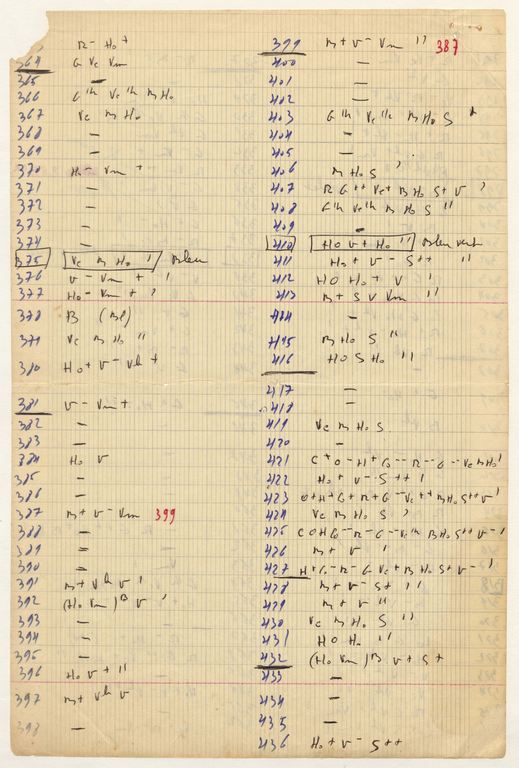 R - Ho +
364 G Ve Vm
365 —
366 G'h Ve'h M Ho
367 Ve M Ho
368 —
369 —
370 Ho - Vm +
371 —
372 —
373 —
374 —
375 Ve M Ho '
376 V - Vm + '
377 Ho - Vm + ?
378 B (Bl)
379 Ve M Ho "
380 Ho + V - Vh +
381 V - Vm +
382 —
383 —
384 Ho V
385 —
386 —
387 M + V - Vm 399
388 —
389 —
390 —
391 M + Vh V '
392 (Ho Vm)B V '
393 —
394 —
395 —
396 Ho V + "
397 M + Vh V
398 —
399 M + V - Vm " 387
400 —
401 —
402 —
403 G'h Ve'h M Ho S
404 —
405 —
406 M Ho S '
407 R G ++ Ve + M Ho S + V '
408 G'h Ve'h M Ho S "
409 —
410 HO V + Ho " Bleu vert
411 Ho + V - S ++ "
412 HO HO + V '
413 M + S V Vm "
414 —
415 M Ho S "
416 HO S Ho "
417 —
418 —
419 Ve M Ho S
420 —
421 C + O - H + G -- R -- G -- Ve M Ho '
422 Ho + V - S ++ '
423 O + H + G + R + G -- Ve ++ M Ho S ++ V '
424 Ve M Ho S '
425 C O H G -- R - G -- Ve'h M Ho S ++ V - '
426 M + V '
427 H + G - R - G Ve + M Ho S + V - '
428 M + V - S + "
429 M + V "
430 Ve M Ho S "
431 HO Ho "
432 (Ho Vm)B V + S +
433 —
434 —
435 —
436 Ho + V - S ++